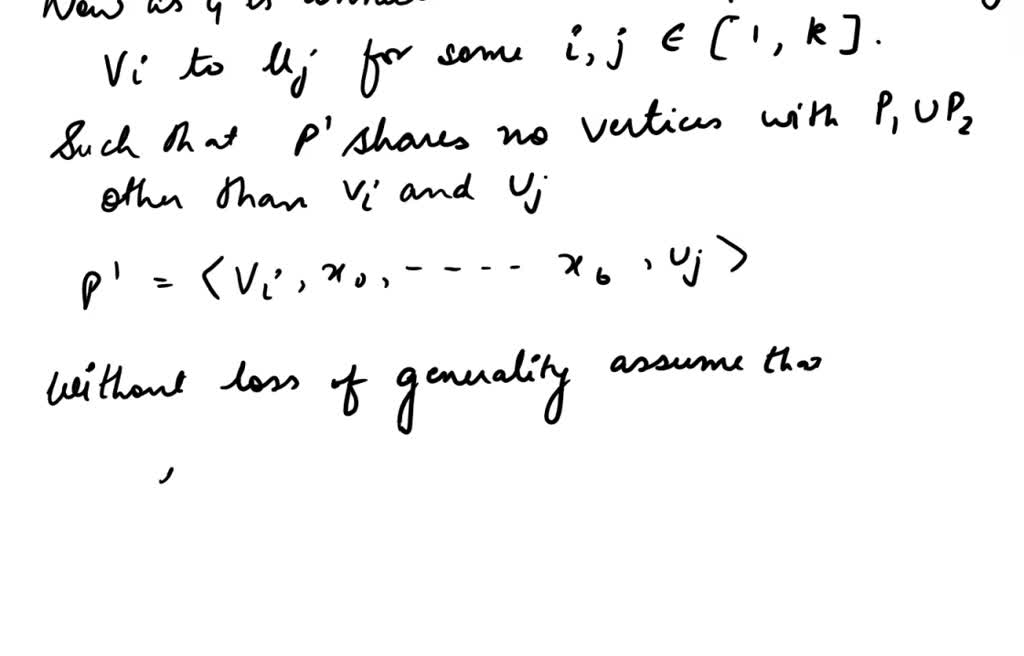 Now as G is
Vi to Uj for some i, j ∈ [1, k].
Such that P' shares no vertices with P₁ ∪ P₂
other than Vi and Uj
P' = ⟨Vi, x₀, ----- x₆, Uj⟩
without loss of generality assume
,